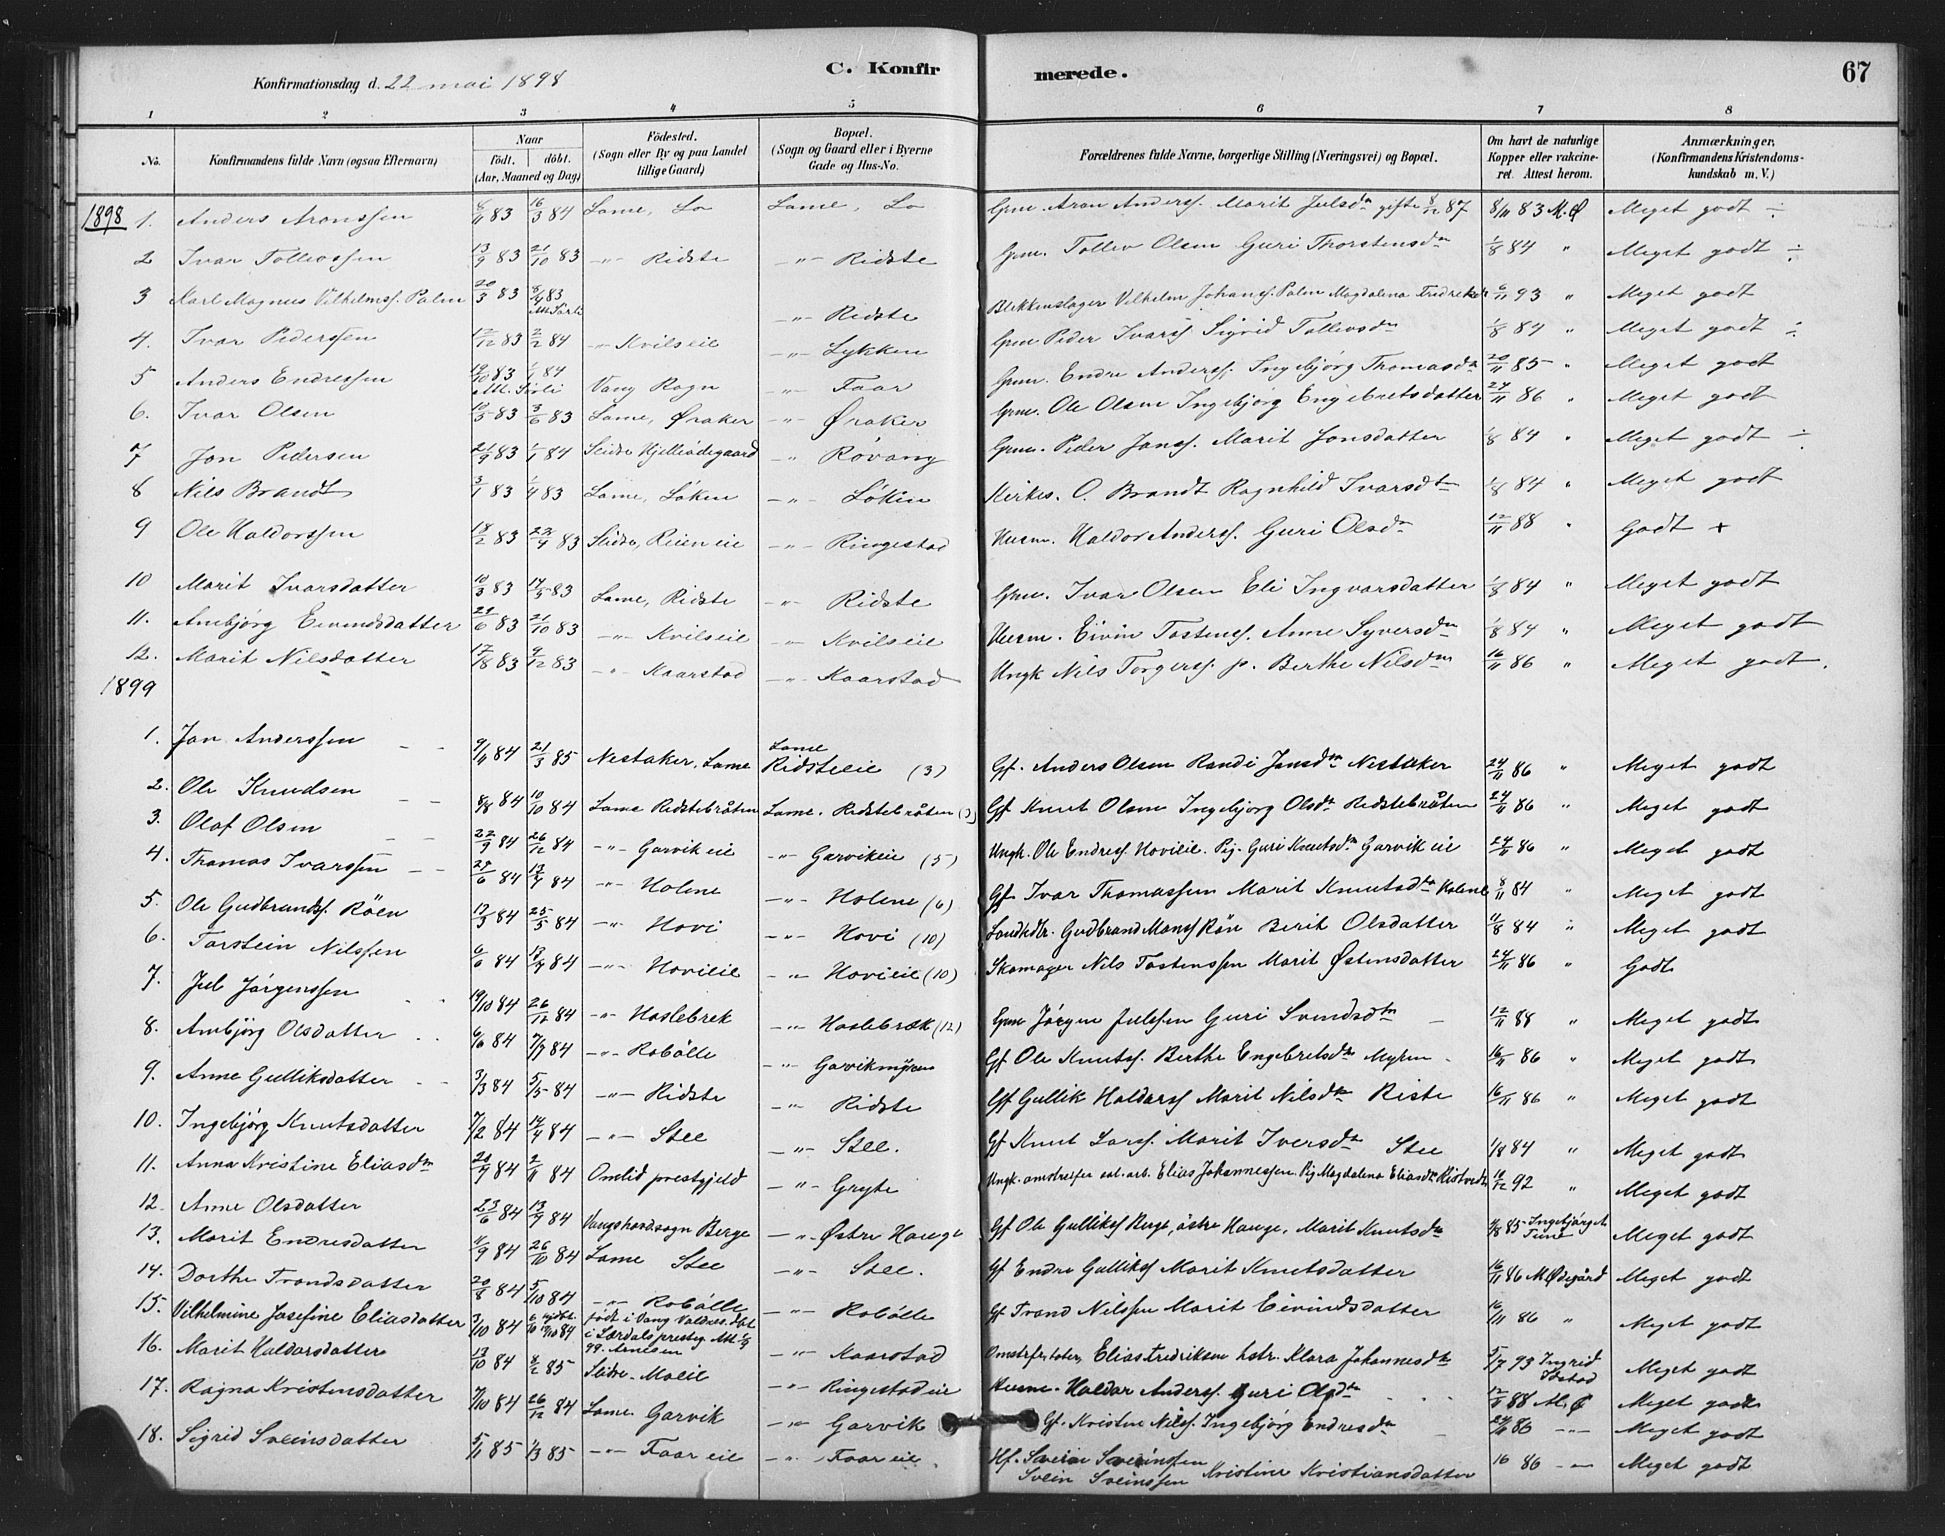 Konfirmationsdag d. 22 mai 1898
C. Konfirmerede.
67
1 2 3 4 5 6 7 8
No. | Konfirmandens fulde Navn (ogsaa Efternavn) | Naar födt. döbt. (Aar, Maaned og Dag) | Födested. (Sogn eller By og paa Landet tillige Gaard) | Bopæl. (Sogn og Gaard eller i Byerne Gade og Hus-No. | Forældrenes fulde Navne, borgerlige Stilling (Næringsvei) og Bopæl. | Om havt de naturlige Kopper eller vakcineret. Attest herom. | Anmærkninger, (Konfirmandens Kristendomskundskab m. V.)
1898 1. Anders Aronssen 8/11 83 16/3 84 Lome, Lo Lome, Lo Gm. Aron Anderss. Marit Julsdtr gifte 8/12 87 8/11 83 M. Ø Meget godt ÷
2 Ivar Tollevssen 13/9 83 21/10 83 -"- Ridste -"- Ridste Gm. Tollev Olsen Guri Thorstensdtr 1/8 84 " Meget godt ÷
3 Karl Magnus Vilhelmss. Palm 20/3 83 8/4 83 -"- Ridste Blikkenslager Vilhelm Johanss. Palm Magdalena Fredriksdtr 6/11 93 " Meget godt
4. Ivar Pederssen 12/12 83 2/2 84 -"- Kvilseie -"- Lykken Gm Peder Ivarss. Sigrid Tollevsdtr 1/8 84 " Meget godt ÷
5 Anders Endressen 19/10 83 1/1 84 Vang Ragn -"- Faar Gm. Endre Anderss. Ingebjörg Thomasdtr 20/11 85 " Meget godt
6. Ivar Olsen 12/5 83 3/6 83 Lome, Øraker -"- Øraker Gm. Ole Olsen Ingebjorg Engebretsdatter 24/11 86 " Meget godt
7 Jon Pedersen 21/9 83 1/1 84 Slidre Hjelleödegaard -"- Røvang Gm. Peder Jonss. Marit Jonsdatter 1/8 84 " Meget godt ÷
8 Nils Brandt 3/1 83 1/4 83 Lome, Løken -"- Løkin Kirkes. O. Brandt Ragnhild Ivarsdtr 1/8 84 " Meget godt
9 Ole Haldorssen 18/2 83 22/4 83 Slidre, Reien eie -"- Ringestad Husm. Haldor Anderss. Guri Olsdtr 12/11 88 " Godt +
10 Marit Ivarsdatter 10/3 83 14/5 83 Lome, Ridste -"- Ridste Gm. Ivar Olsen Eli Ingvarsdatter 1/8 84 " Meget godt
11. Ambjörg Eivindsdatter 21/6 83 21/10 83 -"- Kvilseie -"- Kvilseie Husm. Eivin Tostenss. Anne Syversdtr 1/8 84 " Meget godt
12. Marit Nilsdatter 17/8 83 9/12 83 -"- Kaarstad -"- Kaarstad Ungk Nils Torgerss. p. Berthe Nilsdtr 16/11 86 " Meget godt.
1899
1. Jon Anderssen 9/11 84 21/3 85 Nestaker, Lome Lome Ridsteeie (3) Gf. Anders Olsen Randi Jonsdtr Nestaker 24/11 86 " Meget godt
2. Ole Knudsen 8/8 84 10/10 84 Lome Ridstebråten Lome. Ridstebråten (3) Gf Knut Olsen Ingebjorg Olsdtr Ridstebråten 24/11 86 " Meget godt
3. Olof Olsen 22/9 84 26/12 84 -"- Garvik eie -"- Garvikeie (5) Ungk. Ole Endress. Hovieie. Pig. Guri Knutsdtr Garvik eie 24/11 86 " Meget godt
4. Thomas Ivarssen 29/6 84 13/9 84 -"- Holene -"- Holene (6) Gf Ivar Thomassen Marit Knutsdtr Holene 8/11 84 " Meget godt
5. Ole Gudbrandss. Röen 17/3 84 25/5 84 -"- Hovi -"- Hovi (10) Landhdlr. Gudbrand Monss Røn Berit Olsdatter 11/8 84 " Meget godt
6. Torstein Nilssen 6/6 84 13/9 84 -"- Hovieie -"- Hovieie (10) Skomager Nils Tostenssen Marit Østensdatter 24/11 86 " Godt
7. Jul Jörgenssen 19/10 84 26/12 84 -"- Haslebrek -"- Haslebræk (12) Gm Jörgen Julssen Guri Svendsdtr 12/11 88 " Meget godt
8. Ambjörg Olsdatter 6/6 84 7/9 84 -"- Robölle -"- Garvikmyren Gf Ole Knutss. Berthe Engebretsdtr Myren 16/11 86 " Meget godt
9. Anne Gulliksdatter 3/3 84 5/5 84 -"- Ridste -"- Ridste Gf Gullik Haldorss Marit Nilsdtr Riste 16/11 86 " Meget godt
10. Ingebjörg Knutsdatter 7/2 84 14/4 84 -"- Stee -"- Stee. Gf Knut Larss. Marit Iversdtr Stee 1/8 84 " Meget godt
11. Anna Kristine Eliasdtr 20/9 84 2/11 84 Omlid prestgjeld -"- Gryte Ungk. omstreifer Elias Johannessen. Pig. Magdalena Eliasdtr 10/12 92 " Meget godt
12. Anne Olsdatter 23/6 84 13/9 84 Vangshovdsogn Berge -"- Østre Hauge Gf Ole Gulliksss Berge, østre Hauge, Marit Knutsdtr 4/8 85 Ingebjörget Tune Meget godt
13. Marit Endresdatter 11/9 84 26/10 84 Lome Stee -"- Stee. Gf Endre Gullikss Marit Knutsdatter 16/11 86 M Ødegård Meget godt
14. Dorthe Trondsdatter 20/8 84 5/10 84 -"- Robölle -"- Robölle Gf Trond Nilssen Marit Eivindsdatter 16/11 86 " Meget godt
15. Vilhelmine Josefine Eliasdatter 3/10 84 födt i Vang Valdres. döbt i Lærdals prestg. -"- Kaarstad Omstrf. tater, Elias Fredriksen hstr. Klara Johannesdtr 5/7 93 Ingrid Meget godt
16. Marit Haldorsdatter 13/10 84 8/2 85 Slidre Moeie -"- Ringestadeie Husm. Haldor Anderss. Guri Olsdtr 12/11 88 M. Ø Meget godt
17. Ragna Kristensdatter 7/10 84 26/12 84 Lome Garvik -"- Garvik Gf. Kristen Nilss. Ingebjörg Endresdtr 24/11 86 -"- Meget godt
18. Sigrid Sveinsdatter 5/1 85 1/3 85 -"- Faar eie -"- Faar eie. Hf. Svein Sveinssen Kristine Kristiansdatter 16 86 -"- Meget godt
Svein Sveinssen